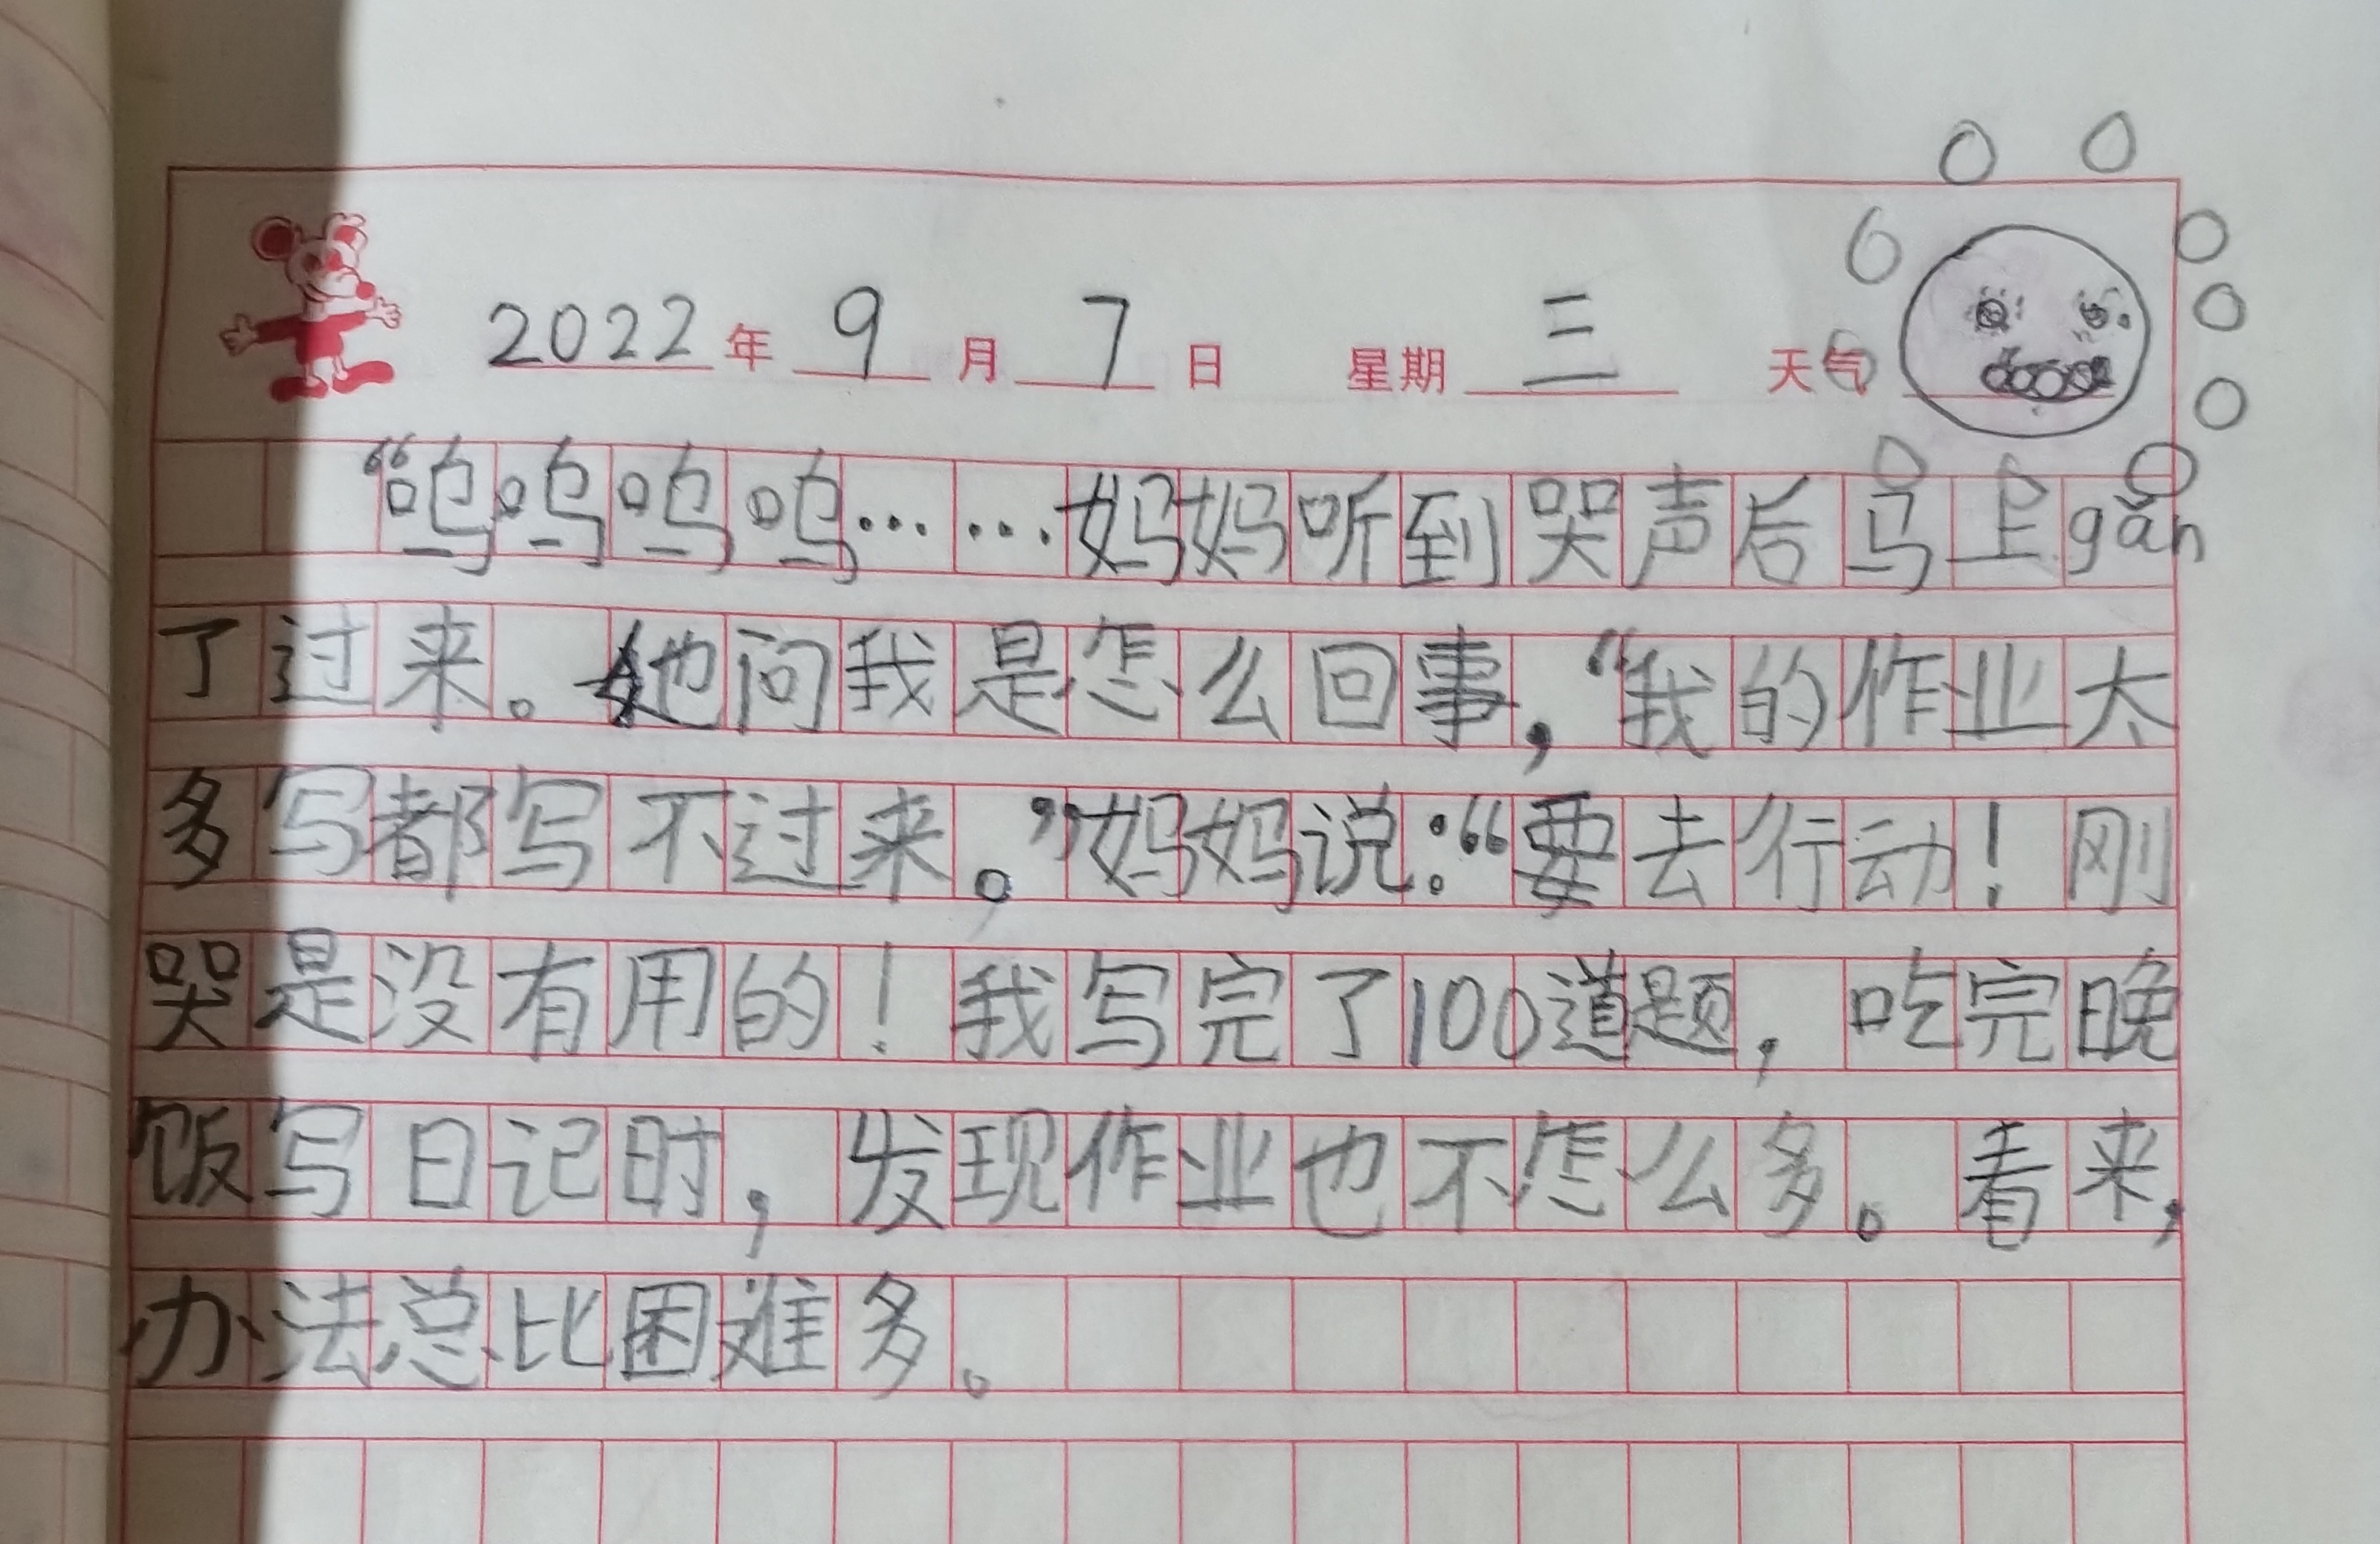 2022年9月7日 星期三 天气
“呜呜呜呜……妈妈听到哭声后马上gǎn
了过来。她问我是怎么回事，“我的作业太
多写都写不过来。”妈妈说：“要去行动！刚
哭是没有用的！我写完了100道题，吃完晚
饭写日记时，发现作业也不怎么多。看来，
办法总比困难多。